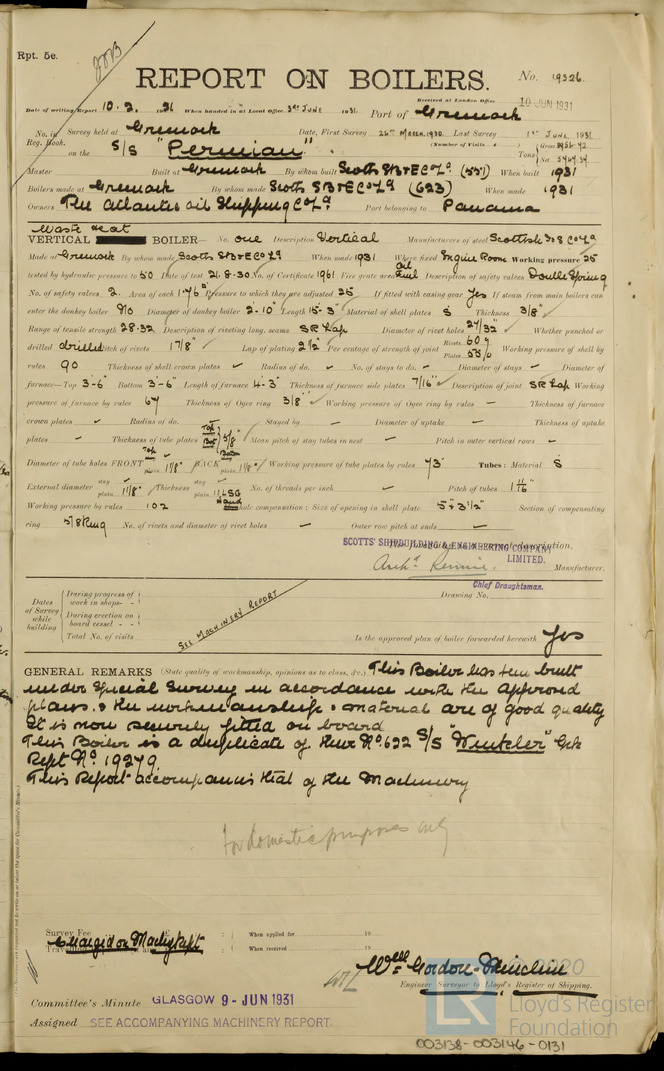 Rpt. 5e.
REPORT ON BOILERS.
No. 19326
Received at London Office 10 JUN 1931
Date of writing Report 10.2.1931 When handed in at Local Office 3rd June 1931 Port of Greenock
No. in Reg. Book. Survey held at Greenock Date, First Survey 26th March 1930 Last Survey 1st June 1931
on the S/S "Permian" (Number of Visits ) Tons Gross Net
Master Built at Greenock By whom built Scotts SB & E Co Ld (551) When built 1931
Boilers made at Greenock By whom made Scotts SB & E Co Ld (623) When made 1931
Owners The Atlantic Oil Shipping Co Ld Port belonging to Panama
Waste Heat
VERTICAL BOILER— No. One Description Vertical Manufacturers of steel Scottish I & S Co Ld
Made at Greenock By whom made Scotts SB & E Co Ld When made 1931 Where fixed Engine Room Working pressure 25
tested by hydraulic pressure to 50 Date of test 21.8.30 No. of Certificate 1961 Fire grate area Oil Fuel Description of safety valves Double Spring
No. of safety valves 2. Area of each 1.76" Pressure to which they are adjusted 25 If fitted with easing gear Yes If steam from main boilers can
enter the donkey boiler No Diameter of donkey boiler 2-10" Length 15-3" Material of shell plates S Thickness 3/8"
Range of tensile strength 28.32 Description of riveting long. seams SR Lap Diameter of rivet holes 27/32" Whether punched or
drilled drilled Pitch of rivets 1 7/8" Lap of plating 2 1/2" Per centage of strength of joint Rivets 60.9 Plates 55.0 Working pressure of shell by
rules 90 Thickness of shell crown plates - Radius of do. - No. of stays to do. - Diameter of stays - Diameter of
furnace—Top 3-6" Bottom 3-6" Length of furnace 4-3" Thickness of furnace side plates 7/16" Description of joint SR Lap Working
pressure of furnace by rules 67 Thickness of Ogee ring 3/8" Working pressure of Ogee ring by rules - Thickness of furnace
crown plates - Radius of do. - Stayed by - Diameter of uptake - Thickness of uptake
plates - Thickness of tube plates Top Bot 5/8" Mean pitch of stay tubes in nest - Pitch in outer vertical rows -
Diameter of tube holes FRONT Top plain 1 1/8" BACK Bottom plain 1 1/8" Working pressure of tube plates by rules 73 Tubes: Material S
External diameter stay - plain 1 1/8" Thickness stay - plain 11 LSG No. of threads per inch - Pitch of tubes 1 9/16"
Working pressure by rules 102 Hand hole compensation: Size of opening in shell plate 5" x 3 1/2" Section of compensating
ring 5/8 Ring No. of rivets and diameter of rivet holes - Outer row pitch at ends -
SCOTTS' SHIPBUILDING & ENGINEERING COMPANY LIMITED.
Archd. Rennie. Manufacturer.
Chief Draughtsman.
Dates of Survey while building
During progress of work in shops
During erection on board vessel
Total No. of visits
SEE MACHINERY REPORT
Drawing No.
Is the approved plan of boiler forwarded herewith Yes
GENERAL REMARKS (State quality of workmanship, opinions as to class, &c.) This Boiler has been built
under Special Survey in accordance with the approved
plans, & the workmanship & material are of good quality
It is now securely fitted on board
This Boiler is a duplicate of their No. 622 S/S "Winkler" Grk
Rept No. 19279.
This Report accompanies that of the Machinery
for domestic purposes only
Survey Fee When applied for 19
Charged on Machy Rept
When received 19
Wm Gordon-
Engineer Surveyor to Lloyd's Register of Shipping.
© 2020
Committee's Minute GLASGOW 9 - JUN 1931
Assigned SEE ACCOMPANYING MACHINERY REPORT.
LR Lloyd's Register Foundation
003138-003146-0131